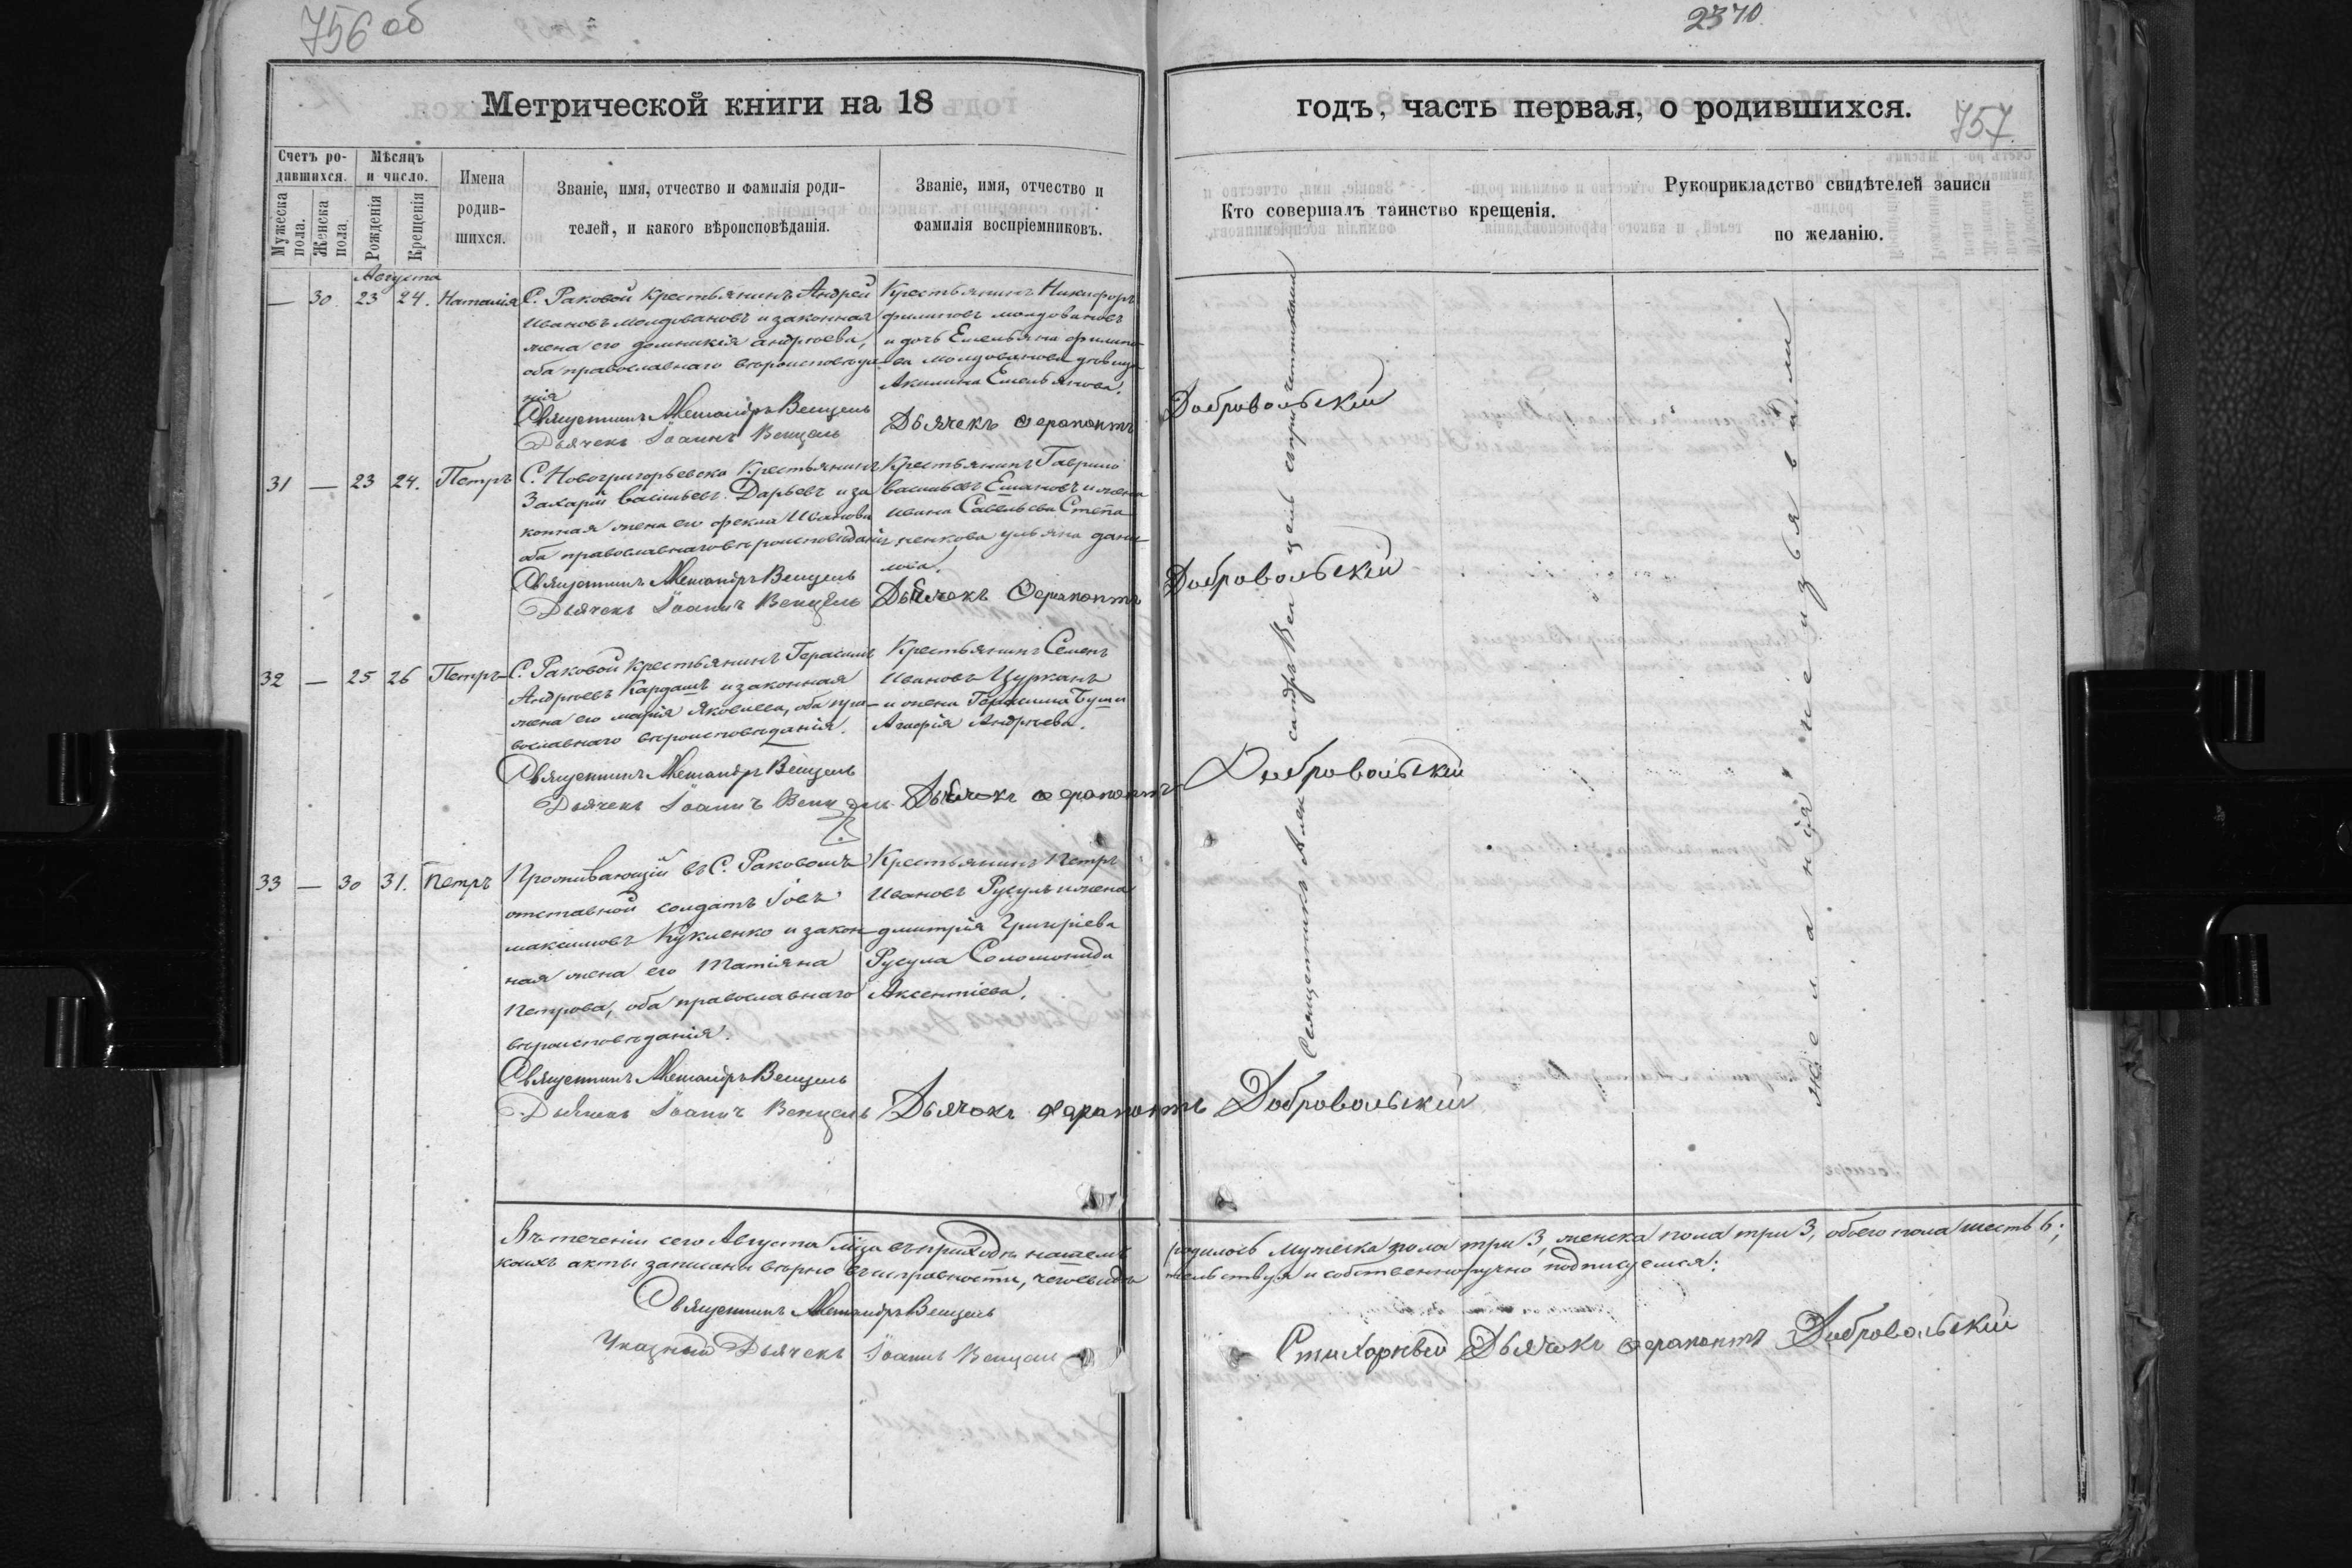 756 об
2370
Метрической книги на 18
годъ, часть первая, о родившихся.
757.
Счетъ ро-
дившихся.
Мѣсяцъ
и число.
Мужеска
пола.
Женска
пола.
Рожденія
Крещенія
Имена
родив-
шихся.
Званіе, имя, отчество и фамилія роди-
телей, и какого вѣроисповѣданія.
Званіе, имя, отчество и
фамилія воспріемниковъ.
Кто совершалъ таинство крещенія.
Рукоприкладство свидѣтелей записи
по желанію.
Августа
— 30. 23 24. Наталія
С. Раковой Крестьянинъ Андрей
Ивановъ Молдовановъ и законная
жена его домникія андреева,
оба православнаго вѣроисповѣда-
нія
Священникъ Александръ Венцель
Дьячекъ Іоаннъ Венцель
Крестьянинъ Никифоръ
филиповъ молдовановъ
и дочь Емельяна филипо-
ва молдованова дѣвица
Акилина Емельянова.
Дьячекъ Ферапонтъ Добровольскій
31 — 23 24. Петръ
С. Новогригорьевска Крестьянинъ
Захарій Васильевъ Дарьевъ и за
конная жена его фекла Иванова
оба православнаго вѣроисповѣданія
Священникъ Александръ Венцель
Дьячекъ Іоаннъ Венцель
Крестьянинъ Гаврило
васильевъ Ешановъ и жена
Ивана Савельева Степа
ненкова ульяна дани-
лова.
Дьячокъ Ферапонтъ Добровольскій
32 — 25 26 Петръ
С. Раковой Крестьянинъ Герасимъ
Андреевъ Кардашъ и законная
жена его марія Яковлева, оба пра-
вославнаго вѣроисповѣданія.
Священникъ Александръ Венцель
Дьячекъ Іоаннъ Венцель
Крестьянинъ Семенъ
Ивановъ Цурканъ
и жена Герасима
Агафія Андреева.
Дьячокъ Ферапонтъ Добровольскій
33 — 30 31. Петръ
Проживающій въ С. Раковомъ
отставной солдатъ Іовъ
максимовъ Кукленко и закон
ная жена его Татіяна
Петрова, оба православнаго
вѣроисповѣданія.
Священникъ Александръ Венцель
Дьячекъ Іоаннъ Венцель
Крестьянинъ Петръ
Ивановъ Русулъ и жена
дмитрія Григоріева
Русула Соломонида
Аксентіева.
Дьячокъ Ферапонтъ Добровольскій
Священникъ Александръ Венцель
желанія не изъявили
Въ теченіи сего Августа мѣсяца въ приходѣ нашемъ родилось Мужеска пола три 3, женска пола три 3, обоего пола шесть 6;
коихъ акты записаны вѣрно въ исправности, что свидѣтельствуя и собственноручно подписуемся:
Священникъ Александръ Венцель
Указный Дьячекъ Іоаннъ Венцель
Стихарный Дьячокъ Ферапонтъ Добровольскій